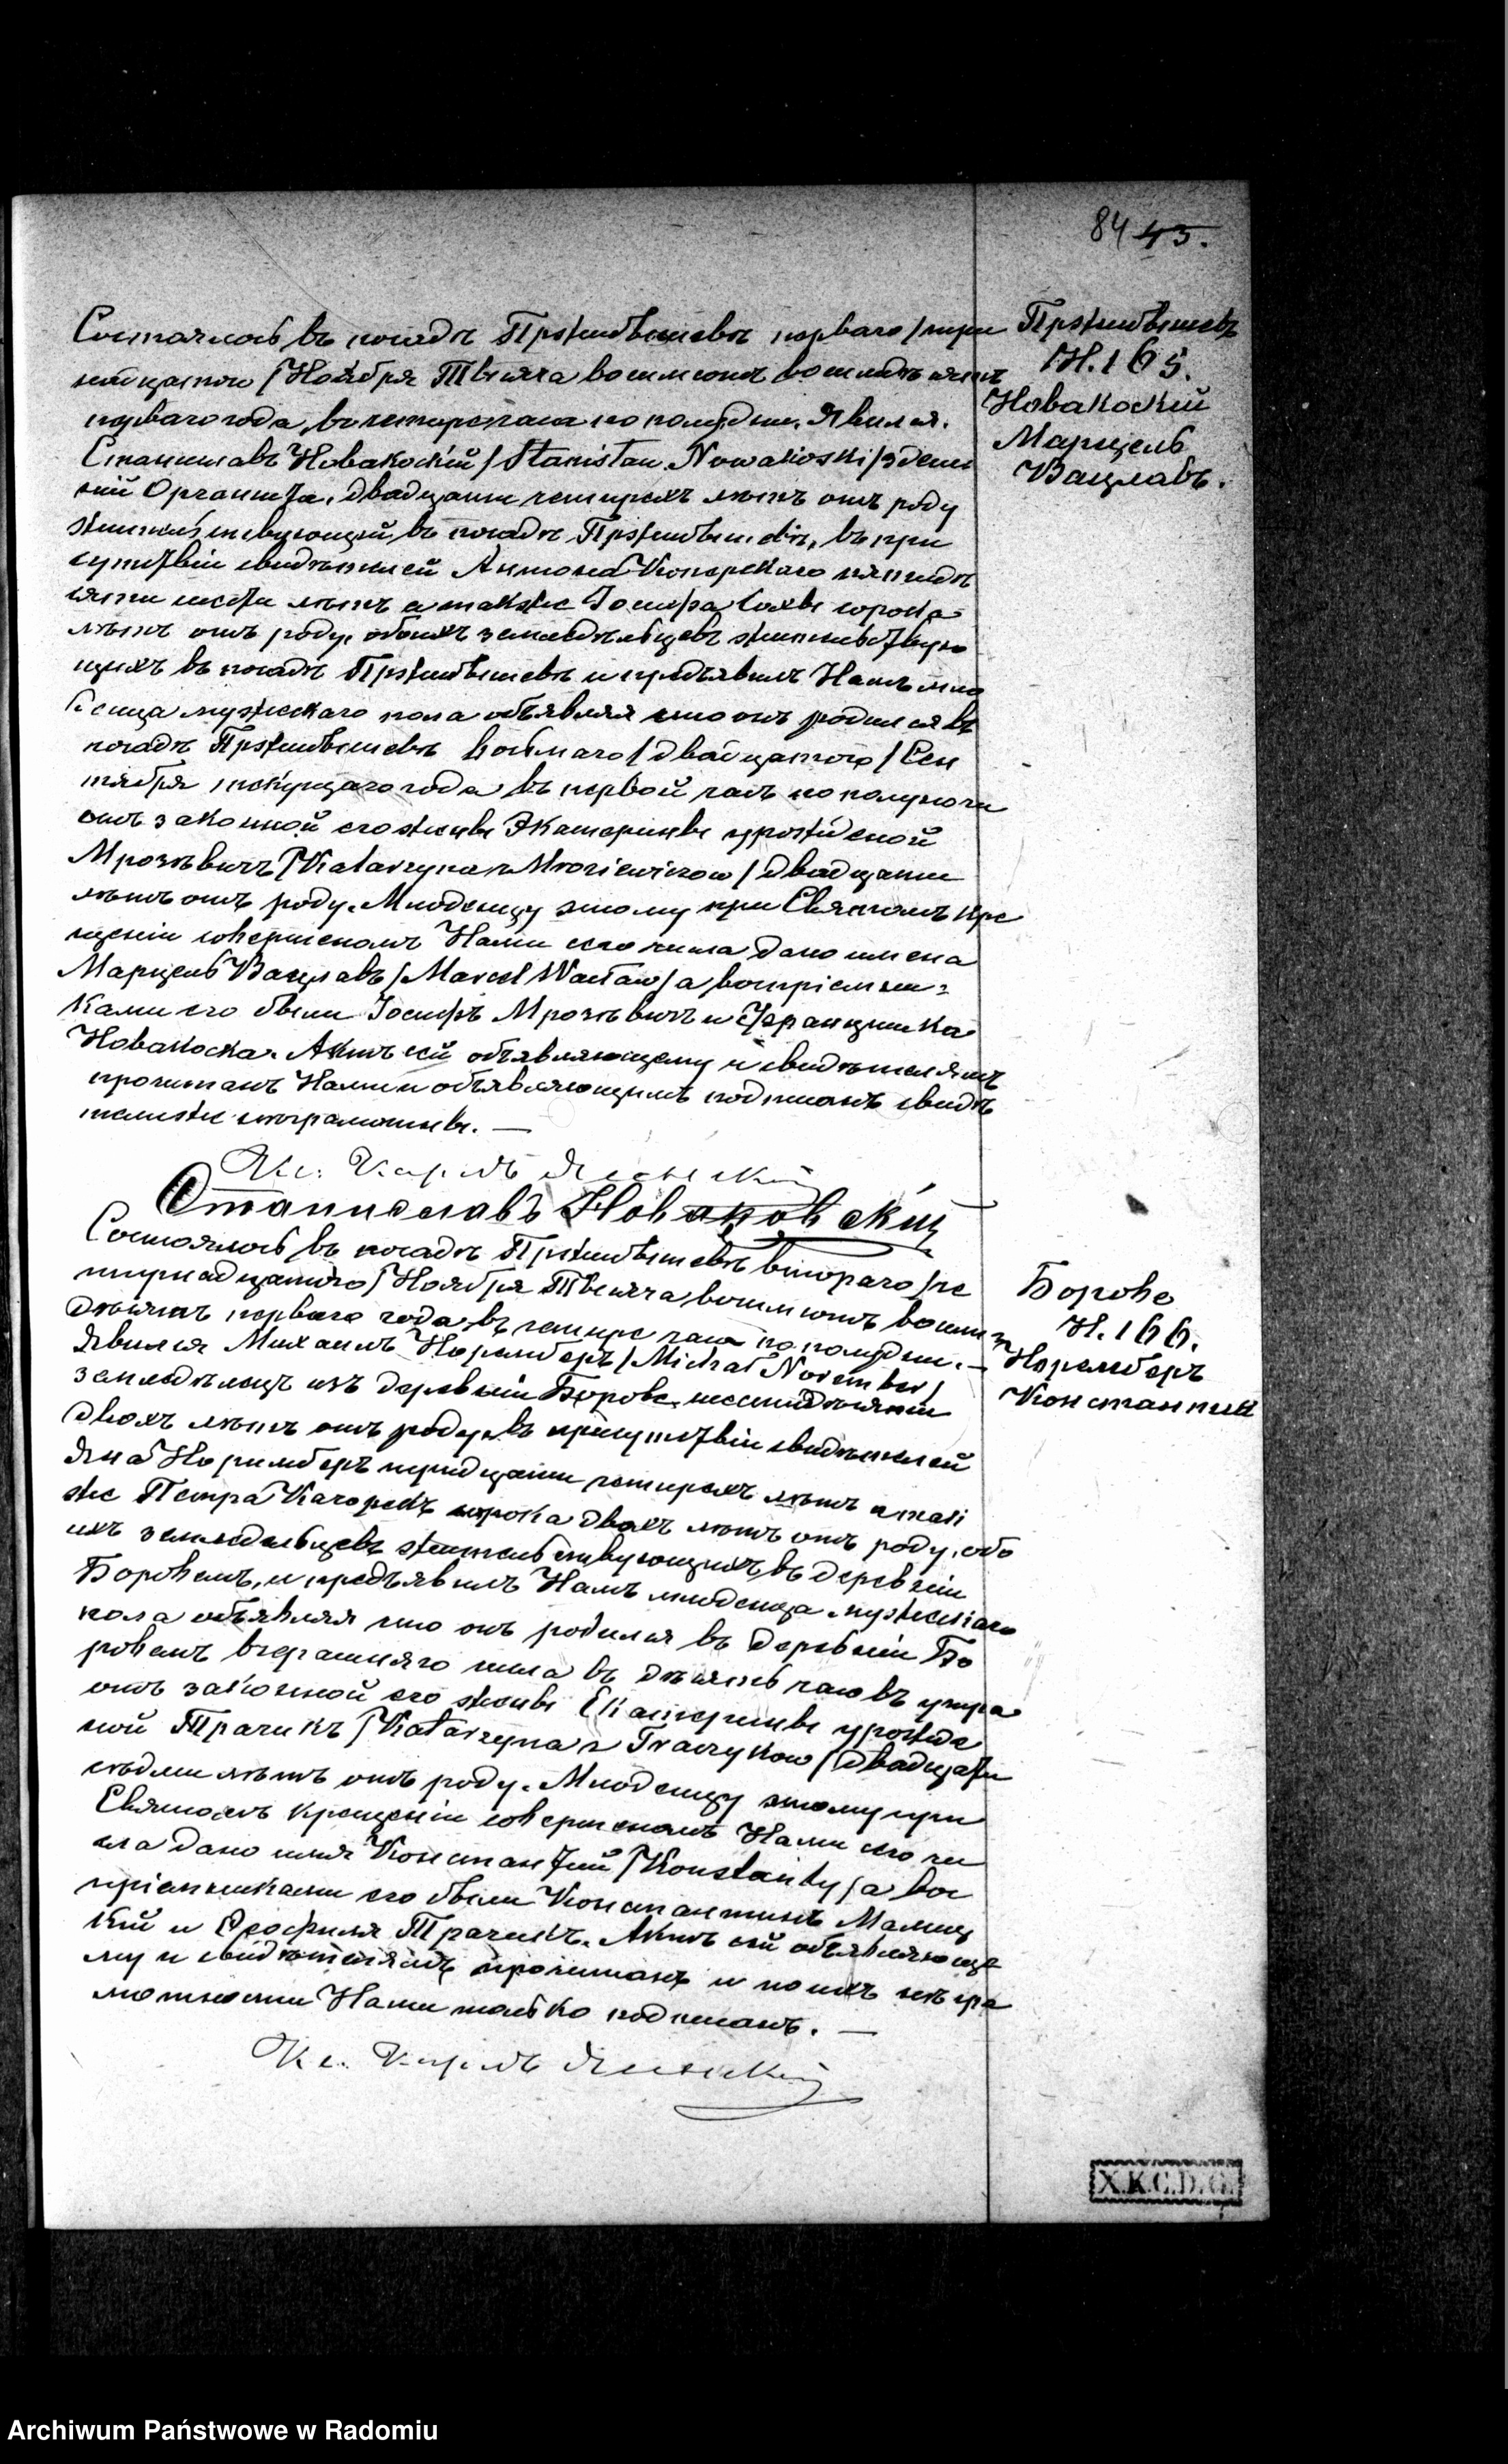 84 43.
Состоялось въ посадѣ Пржитыкевѣ перваго / три
надцатаго / Ноября Тысяча восемсотъ восмидесятъ
перваго года, въ четыре часа по полудни. Явился.
Станиславъ Новакоскій / Stanisław Nowakoski / здеш
ній Органиста, двадцати четырехъ лѣтъ отъ роду
жительствующій въ посадѣ, въ при
сутствіи свидѣтелей Антона пятидѣ
сяти шести лѣтъ а также Іосифа сорока
лѣтъ отъ роду, обоихъ земледѣльцевъ жительствую
щихъ въ посадѣ и предъявилъ Намъ мла
денца мужескаго пола объявляя что онъ родился въ
посадѣ восьмаго / двадцатого / Сен
тября текущаго года въ первой часъ по полуночи
отъ законной его жены Экатерины урожденой
Мрозѣвичъ / Katarzyna z Mroziewiczow / двадцати
лѣтъ отъ роду. Младенцу этому при Святомъ Кре
щеніи совершеномъ Нами сего числа дано имена
Марцель Вацлавъ / Marcel Wacław / а воспріемни=
ками его были Іосифъ Мрозѣвичъ и Францишка
Новакоска. Актъ сей объявляющему и свидѣтелямъ
прочитанъ Нами и объявляющимъ подписанъ свидѣ
тели же неграмотны. —
Кс. Кароль
Станиславъ Новаковскій
Состоялось въ посадѣ втораго / че
тырнадцатаго / Ноября Тысяча восемсотъ восми
дѣсятъ перваго года, въ четыре часа по полудни. —
Явился Михаилъ Новемберъ / Michał November /
земледѣлецъ изъ деревни Борове, шестидѣсяти
двохъ лѣтъ отъ роду, въ присутствіи свидѣтелей
Яна тридцати четырехъ лѣтъ а так
же Петра сорока двохъ лѣтъ отъ роду, обо
ихъ земледельцевъ жительствующихъ въ деревніи
Боровемъ, и предъявилъ Намъ младенца мужескаго
пола объявляя что онъ родился въ деревніи Бо
ровемъ вчерашняго числа въ дѣсять часовъ утра
отъ законной его жены Екатерины урожде
ной Трачикъ / Katarzyna z Traczykow / двадцати
сѣдми лѣтъ отъ роду. Младенцу этому при
Святомъ Крещеніи совершеномъ Нами сего чи
сла дано имя Константий / Konstanty / а вос
пріемниками его были Константинъ
и Феофиля Трачикъ. Актъ сей объявляюще
му и свидѣтелямъ прочитанъ и по ихъ негра
мотности Нами только подписанъ. —
Кс. Кароль
Н. 165.
Новакоскій
Марцель
Вацлавъ.
Борове
Н. 166.
Константий
X.K.C.D.G.
Archiwum Państwowe w Radomiu